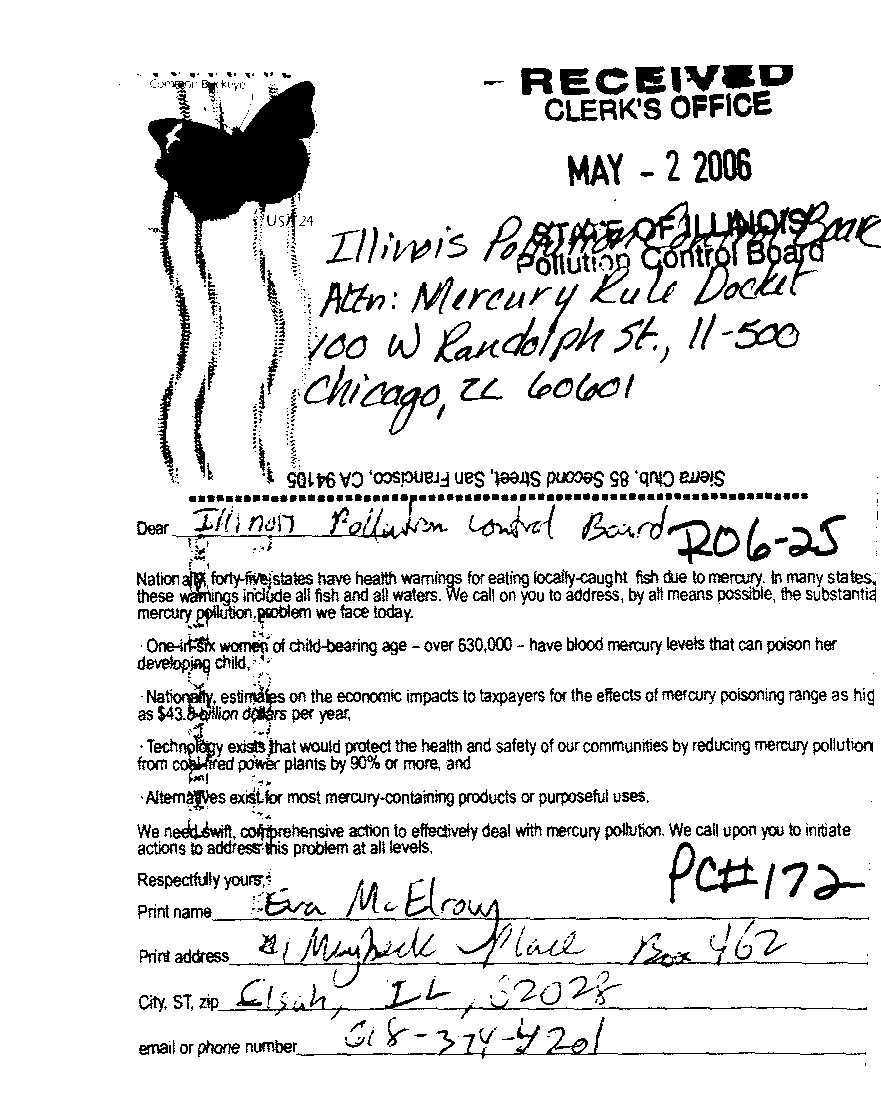 Common Buckeye
USA 24
RECEIVED
CLERK'S OFFICE
MAY - 2 2006
STATE OF ILLINOIS
Pollution Control Board
Illinois Pollution Control Board
Attn: Mercury Rule Docket
100 W Randolph St., 11-500
Chicago, IL 60601
Sierra Club, 85 Second Street, San Francisco, CA 94105
Dear Illinois Pollution Control Board
R06-25
Nationally, forty-five states have health warnings for eating locally-caught fish due to mercury. In many states,
these warnings include all fish and all waters. We call on you to address, by all means possible, the substantia
mercury pollution problem we face today.
· One-in-six women of child-bearing age – over 630,000 – have blood mercury levels that can poison her
developing child,
· Nationally, estimates on the economic impacts to taxpayers for the effects of mercury poisoning range as hig
as $43.8 billion dollars per year,
· Technology exists that would protect the health and safety of our communities by reducing mercury pollution
from coal-fired power plants by 90% or more, and
· Alternatives exist for most mercury-containing products or purposeful uses.
We need swift, comprehensive action to effectively deal with mercury pollution. We call upon you to initiate
actions to address this problem at all levels.
Respectfully yours,
PC#172
Print name Eva McElroy
Print address #1 Maybeck Place Box 462
City, ST, zip Elsah, IL, 62028
email or phone number 618-374-4201